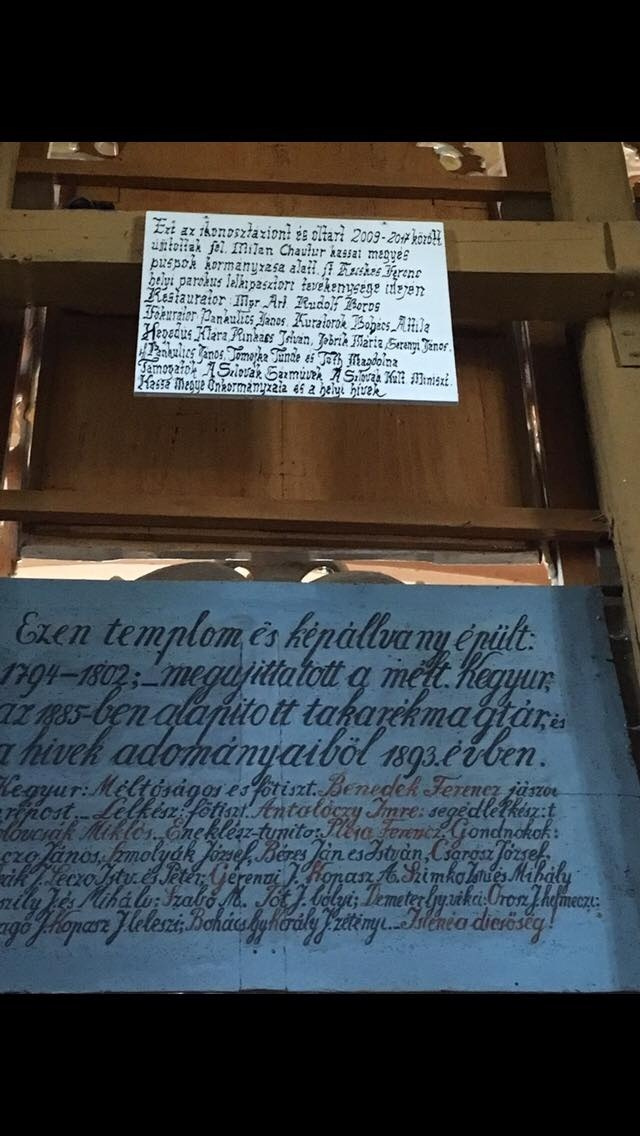 Ezt az ikonosztaziont és oltart 2009-2017 között
újitottak fel. Milan Chautur kassai megyés
puspok kormanyzasa alatt. ft Kecskes Ferenc
helyi parokus lelkipasztori tevekenysege idejen
Restaurator: Mgr. Art. Rudolf Boros
Fokurator Pankulics Janos. Kuratorok Bohacs Attila
Hegedus Klara Runkacs Istvan, Jobrik Maria, Gerenyi Janos.
Pankulics Janos, Tomojka Tunde és Toth Magdolna
Tamogatok A Szlovak Gazmüvek A Szlovak Kult Miniszt.
Kassa Megye Onkormanyzata es a helyi hivek
Ezen templom és képállvány épült:
1794-1802; megujittatott a mélt. Kegyur,
az 1885-ben alapitott takarékmagtár, és
a hivek adományaiböl 1893. évben.
Kegyur: Méltóságos és fötiszt. Benedek Ferencz jászoi
prépost. Lelkész: fötiszt. Antalóczy Imre; segédlelkész: t
Miklós. Éneklész-tynito: Plésa Ferencz. Gondnokok:
János, Szmolyák József, Béres Ján és István, Csarosz József,
Leczo Istv. és Péter, Gerenyi J. Kopasz A. Szimko Ján és Mihály
J. és Mihály; Szabó M. Tót J. bolyi; Demeter Gy. vikei; Orosz J. helmeczi;
J. Kopasz J. leleszi; Bohács Gy. Király J. zétényi. Istené a dicsöség!